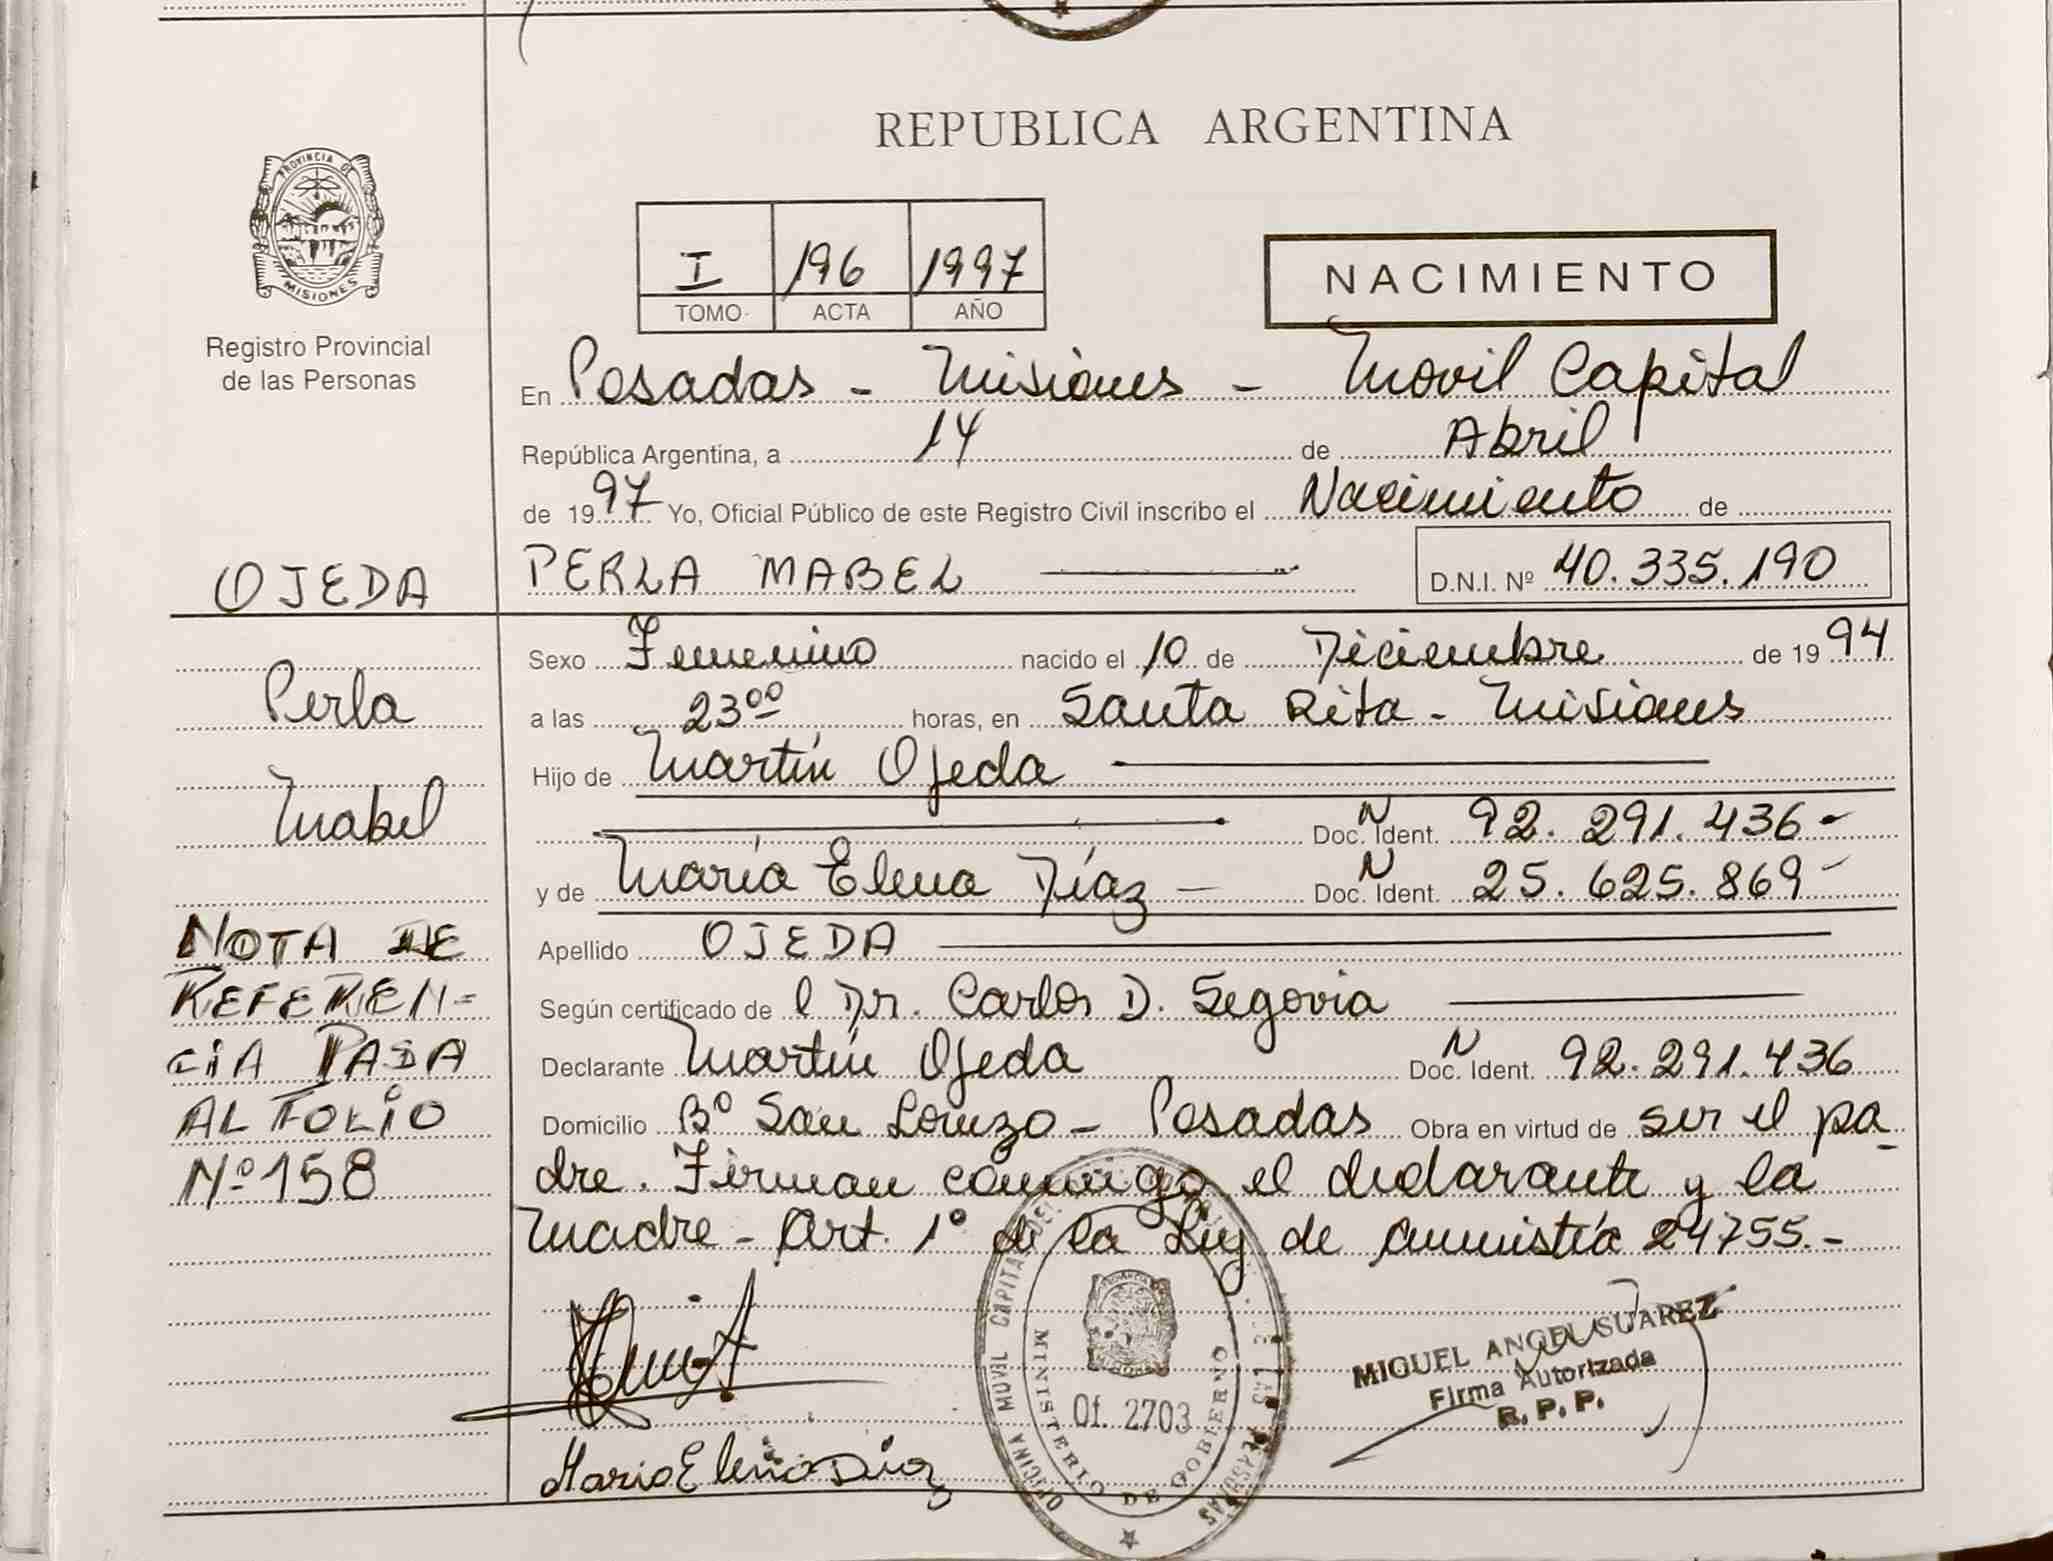 REPUBLICA ARGENTINA
PROVINCIA DE
MISIONES
Registro Provincial
de las Personas
I 196 1997
TOMO ACTA AÑO
NACIMIENTO
En Posadas - Misiones - Movil Capital
República Argentina, a 14 de Abril
de 1997 Yo, Oficial Público de este Registro Civil inscribo el Nacimiento de
OJEDA PERLA MABEL D.N.I. Nº 40.335.190
Sexo Femenino nacido el 10 de Diciembre de 1994
Perla
a las 23⁰⁰ horas, en Santa Rita - Misiones
Hijo de Martín Ojeda
Mabel
Doc. N Ident. 92.291.436-
y de María Elena Díaz - Doc. N Ident. 25.625.869-
NOTA DE
REFEREN=
CiA PASA
AL FOLiO
Nº 158
Apellido OJEDA
Según certificado del Dr. Carlos D. Segovia
Declarante Martín Ojeda Doc. N Ident. 92.291.436
Domicilio Bº San Lorenzo - Posadas Obra en virtud de ser el pa-
dre. Firman conmigo el declarante y la
Madre - Art. 1° de la Ley de Amnistía 24755.-
OFICINA MOVIL CAPITAL DEL
DE LAS PERSONAS
MINISTERIO DE GOBIERNO
Of. 2703
MIGUEL ANGEL SUAREZ
Firma Autorizada
R. P. P.
Maria Elena Diaz